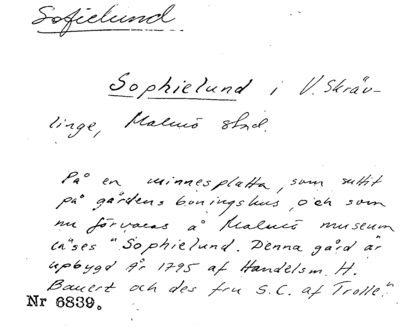 Sofielund
Sophielund i V. Skräv-
linge, Malmö stad.
På en minnesplatta, som suttit
på gårdens boningshus, och som
nu förvaras å Malmö museum
läses "Sophielund. Denna gård är
upbygd År 1795 af Handelsm. H.
Bauert och des fru S.C. af Trolle."
Nr 6839.